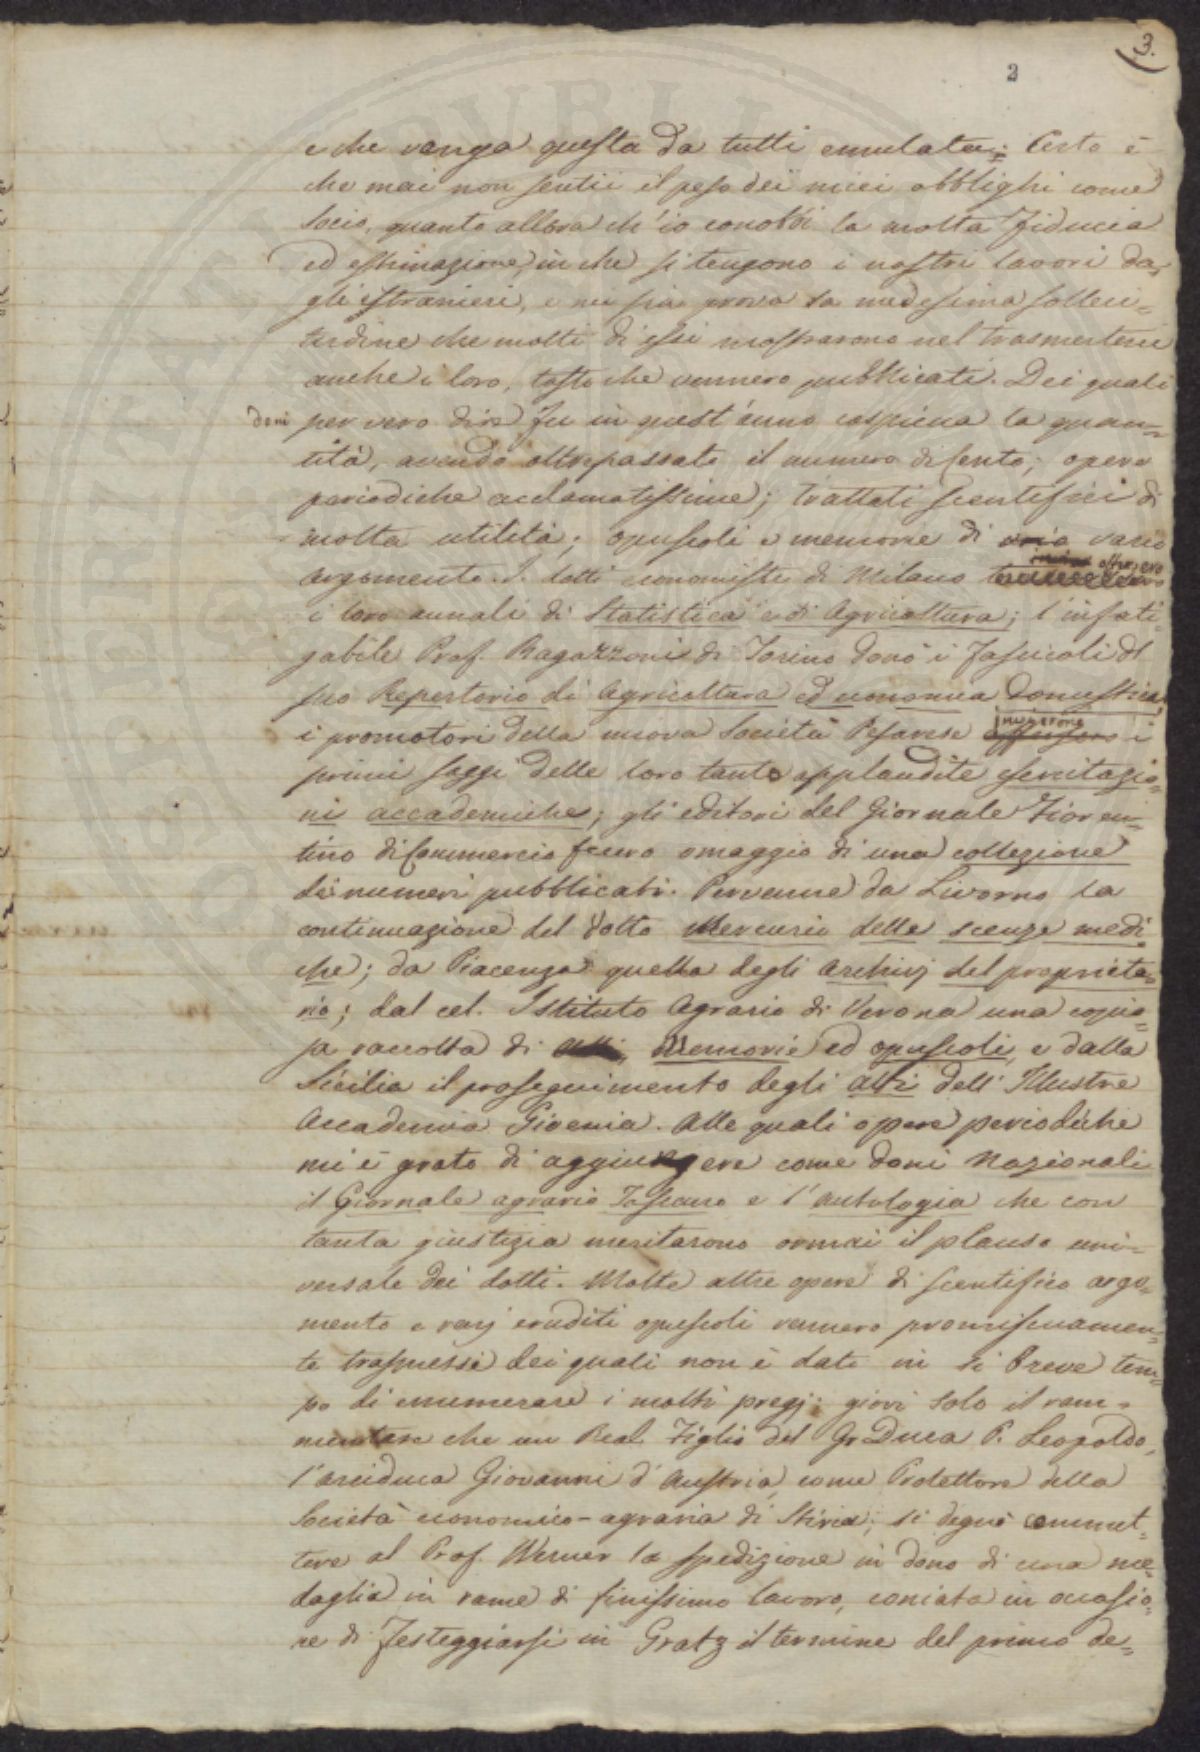 3.
2
e che venga questa da tutti emulata; Certo è
che mai non sentii il peso dei miei obblighi come
Socio, quanto allora ch'io conobbi la molta fiducia
ed estimazione, in che si tengono i nostri lavori da-
gli stranieri, e mi sia prova la medesima solleci-
tudine che molti di essi mostrarono nel trasmetterci
anche i loro, tosto che vennero pubblicati. Dei quali
doni per vero dire fu in quest'anno copiosa la quan-
tità, avendo oltrepassato il numero di Cento; opere
periodiche acclamatissime; trattati scentifici di
molta utilità; opuscoli e memorie di vario
argomento. I dotti economisti di Milano offrirono
i loro annali di Statistica e di Agricoltura; l'infati-
gabile Prof. Ragazzoni di Torino donò i fascicoli del
suo Repertorio di Agricoltura ed economia Domestica,
i promotori della nuova Società Pesarese inviarono i
primi saggi delle loro tanto applaudite esercitazio-
ni accademiche; gli editori del Giornale Fioren-
tino di Commercio fecero omaggio di una collezione
dei numeri pubblicati. Pervenne da Livorno la
continuazione del dotto Mercurio delle scenze medi-
che; da Piacenza quella degli Archivj del proprieta-
rio; dal cel. Istituto Agrario di Verona una copio-
sa raccolta di Memorie ed opuscoli, e dalla
Sicilia il proseguimento degli Atti dell'Illustre
Accademia Gioenia. Alle quali opere periodiche
mi è grato di aggiungere come doni Nazionali
il Giornale agrario Toscano e l'antologia che con
tanta giustizia meritarono ormai il plauso uni-
versale dei dotti. Molte altre opere di scentifico argo-
mento e varj eruditi opuscoli vennero promiscuamen-
te trasmessi dei quali non è dato in sì breve tem-
po di enumerare i molti pregj; giovi solo il ram-
mentare che un Real Figlio del Gr Duca P. Leopoldo,
l'arciduca Giovanni d'Austria, come Protettore della
Società economico-agraria di Stiria, si degnò commet-
tere al Prof. Werner la spedizione in dono di una me-
daglia in rame di finissimo lavoro, coniata in occasio-
ne di festeggiarsi in Gratz il termine del primo de-